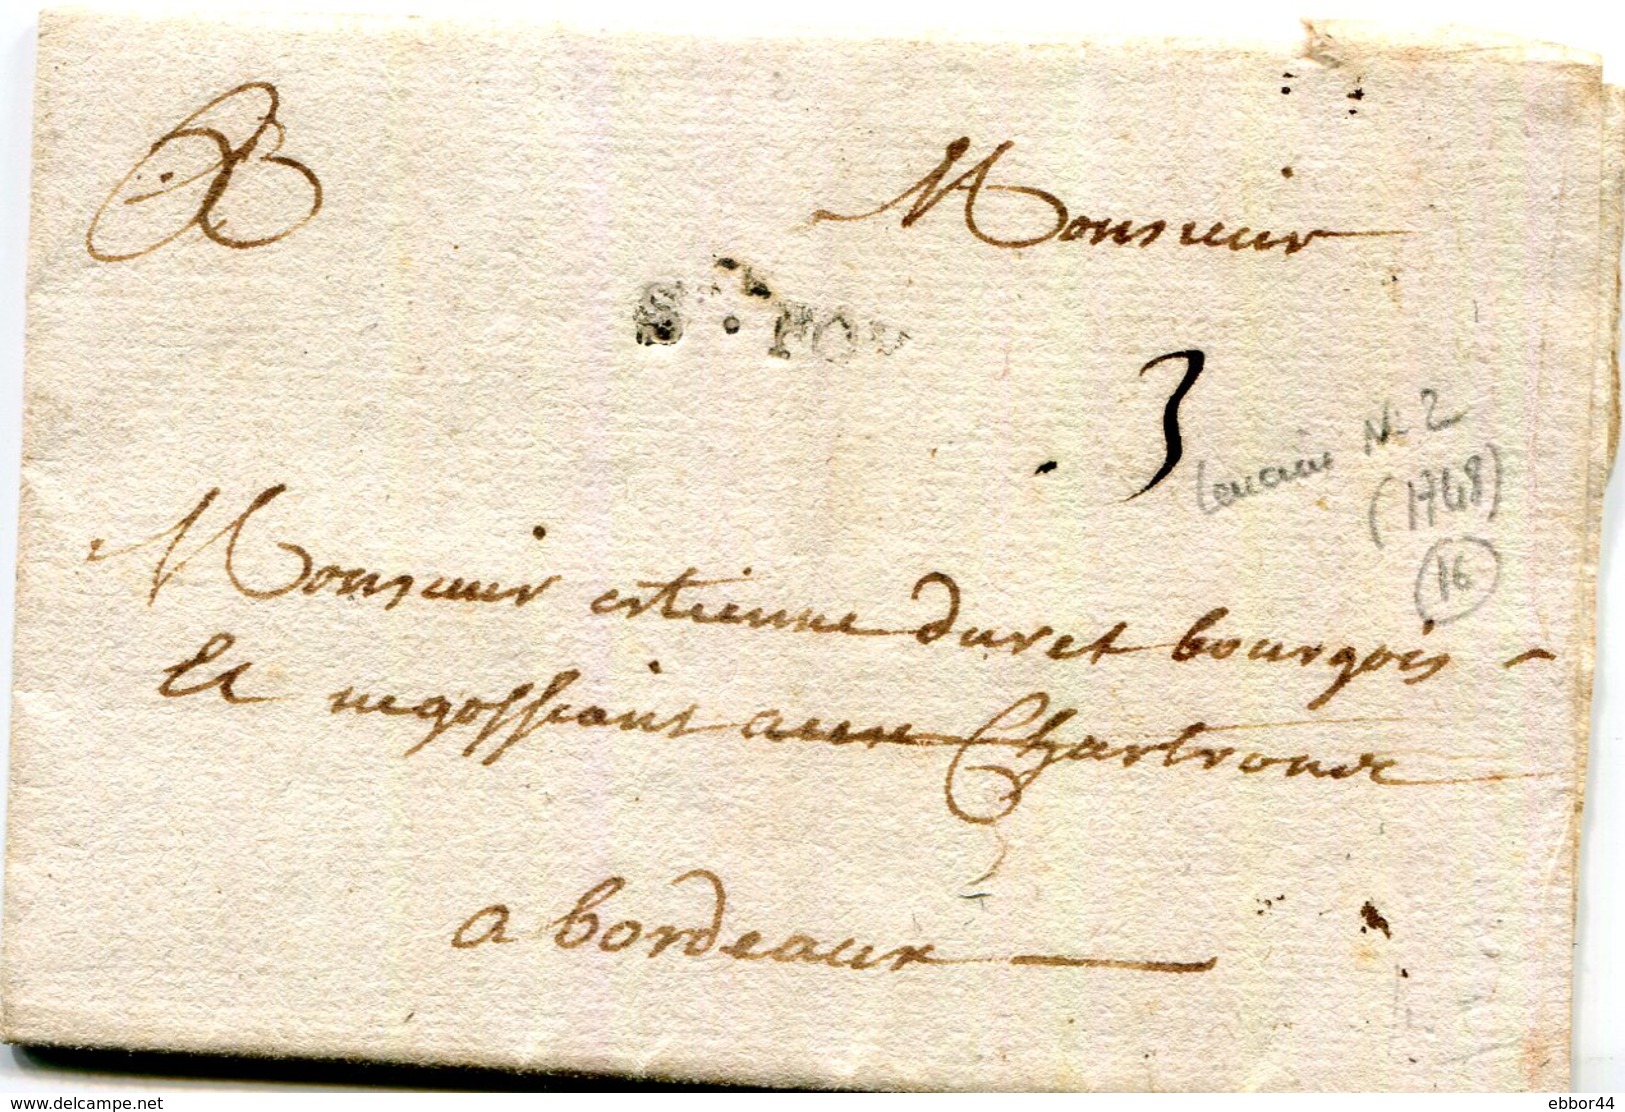 Monsieur
Ste. FOY
3
Lenain N. 2
(1748)
16
Monsieur estienne duret bourgois
Et negossiant aux Chartrons
a bordeaux
www.delcampe.net
ebbor44